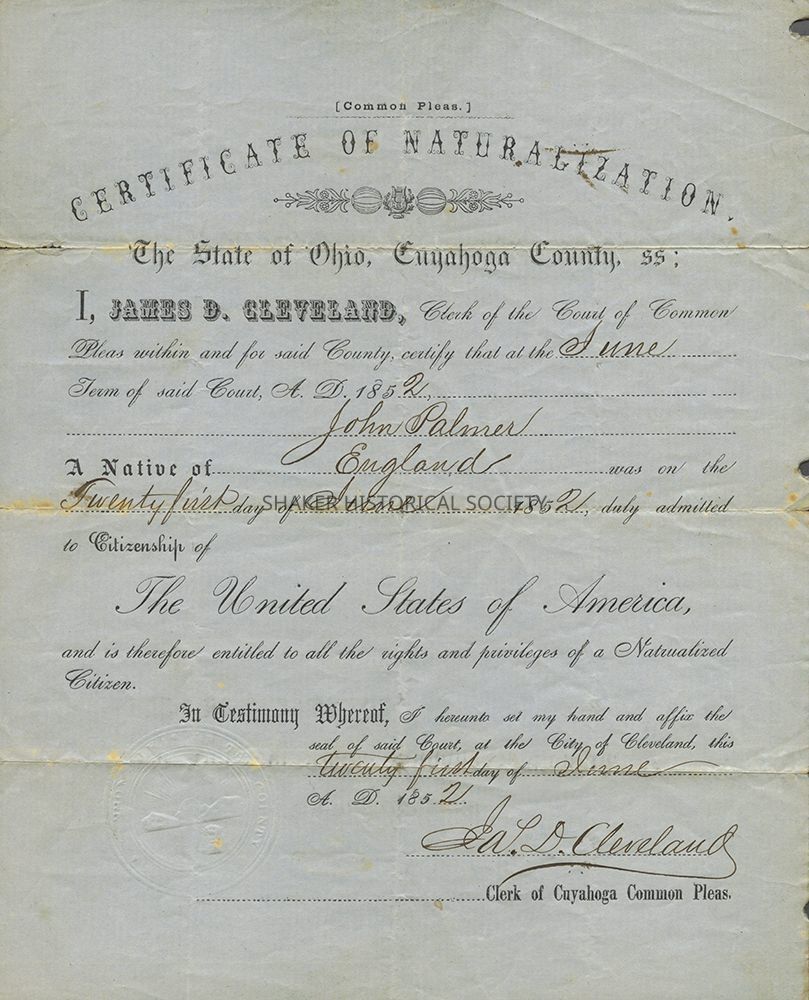 [Common Pleas.]
CERTIFICATE OF NATURALIZATION.
The State of Ohio, Cuyahoga County, ss;
I, JAMES D. CLEVELAND, Clerk of the Court of Common
Pleas within and for said County, certify that at the June
Term of said Court, A. D. 1852,
John Palmer
A Native of England was on the
Twenty first day of June 1852, duly admitted
SHAKER HISTORICAL SOCIETY
to Citizenship of
The United States of America,
and is therefore entitled to all the rights and privileges of a Natrualized
Citizen.
In Testimony Whereof, I hereunto set my hand and affix the
seal of said Court, at the City of Cleveland, this
twenty first day of June
A. D. 1852.
Jas. D. Cleveland
Clerk of Cuyahoga Common Pleas.